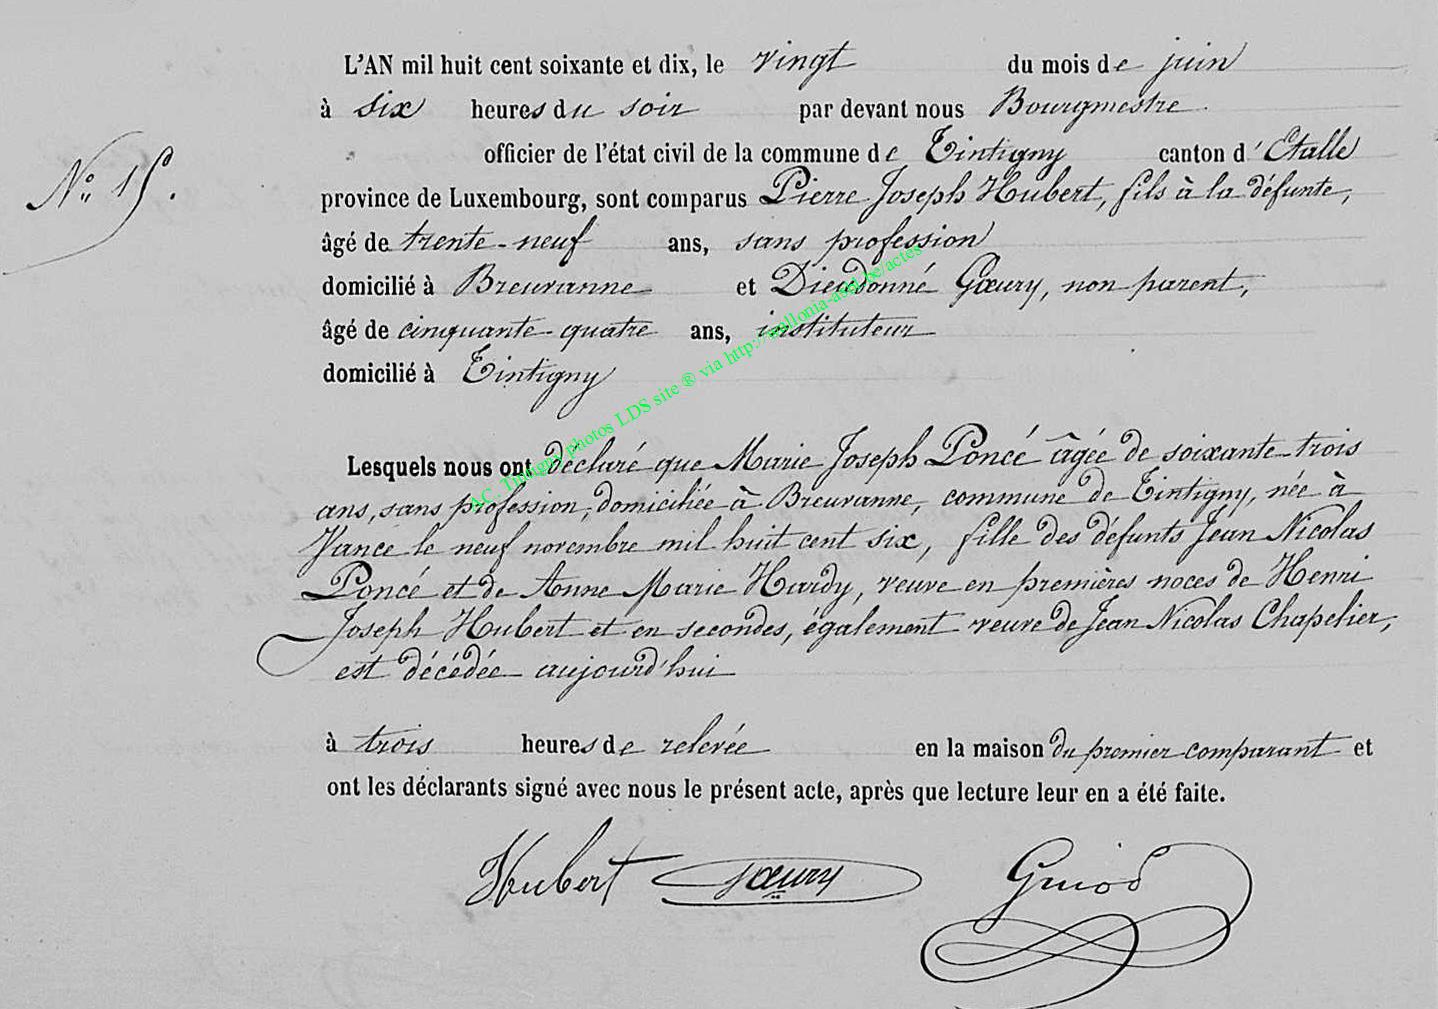 L'AN mil huit cent soixante et dix, le vingt du mois de juin
à six heures du soir par devant nous Bourgmestre
officier de l'état civil de la commune de Tintigny canton d'Etalle
N° 15.
province de Luxembourg, sont comparus Pierre Joseph Hubert, fils à la défunte,
âgé de trente-neuf ans, sans profession
domicilié à Breuvanne et Dieudonné Gœury, non parent,
âgé de cinquante-quatre ans, instituteur
domicilié à Tintigny
A.C. Tintigny photos LDS site ® via http://wallonia-asbl.be/actes
Lesquels nous ont déclaré que Marie Joseph Poncé âgée de soixante-trois
ans, sans profession, domiciliée à Breuvanne, commune de Tintigny, née à
Vance le neuf novembre mil huit cent six, fille des défunts Jean Nicolas
Poncé et de Anne Marie Hardy, veuve en premières noces de Henri
Joseph Hubert et en secondes, également veuve de Jean Nicolas Chapelier,
est décédée aujourd'hui
à trois heures de relevée en la maison du premier comparant et
ont les déclarants signé avec nous le présent acte, après que lecture leur en a été faite.
Hubert Gœury